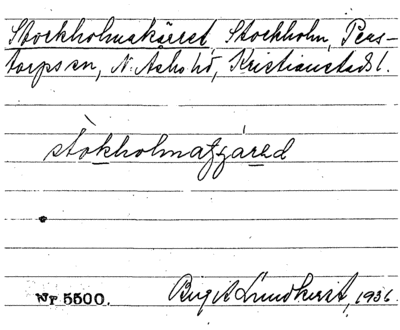 Stockholmskärret, Stockholm, Pers-
torps sn, N. Åsbo hd, Kristianstads l.
stòkholmafjáred
Nr 5500. Birgit Lundkvist, 1936.